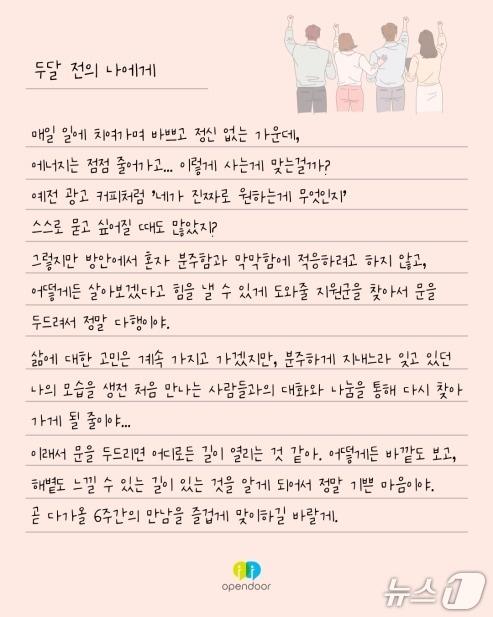 두달 전의 나에게
매일 일에 치여가며 바쁘고 정신 없는 가운데,
에너지는 점점 줄어가고... 이렇게 사는게 맞는걸까?
예전 광고 커피처럼 '네가 진짜로 원하는게 무엇인지'
스스로 묻고 싶어질 때도 많았지?
그렇지만 방안에서 혼자 분주함과 막막함에 적응하려고 하지 않고,
어떻게든 살아보겠다고 힘을 낼 수 있게 도와줄 지원군을 찾아서 문을
두드려서 정말 다행이야.
삶에 대한 고민은 계속 가지고 가겠지만, 분주하게 지내느라 잊고 있던
나의 모습을 생전 처음 만나는 사람들과의 대화와 나눔을 통해 다시 찾아
가게 될 줄이야...
이래서 문을 두드리면 어디로든 길이 열리는 것 같아. 어떻게든 바깥도 보고,
햇볕도 느낄 수 있는 길이 있는 것을 알게 되어서 정말 기쁜 마음이야.
곧 다가올 6주간의 만남을 즐겁게 맞이하길 바랄게.
opendoor
뉴스1